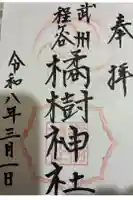 奉拝
武州
程谷
橘樹神社
令和八年三月一日